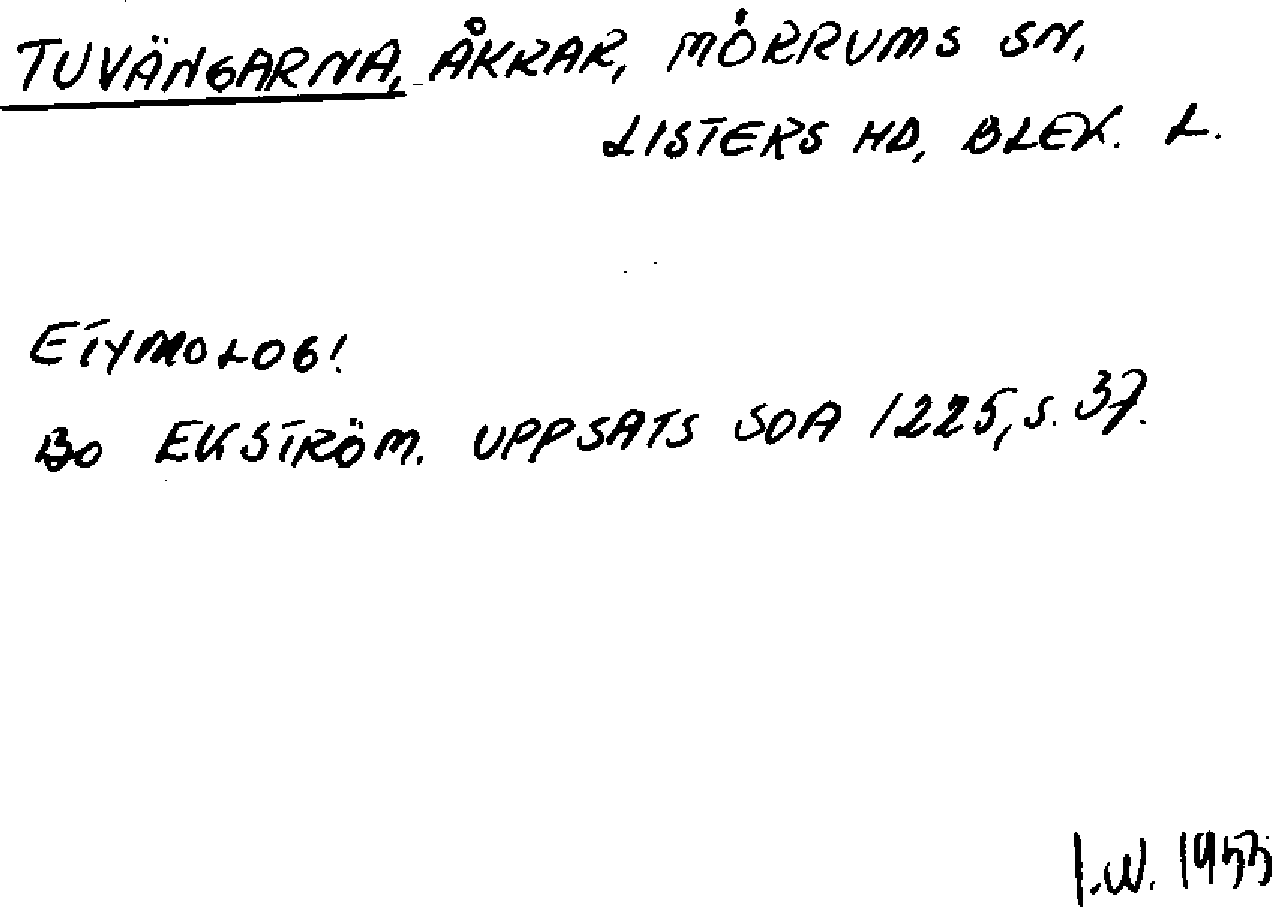 TUVÄNGARNA, ÅKRAR, MÖRRUMS SN,
LISTERS HD, BLEK. L.
ETYMOLOGI
BO EKSTRÖM. UPPSATS SOA 1225, S. 37.
I.W. 1955